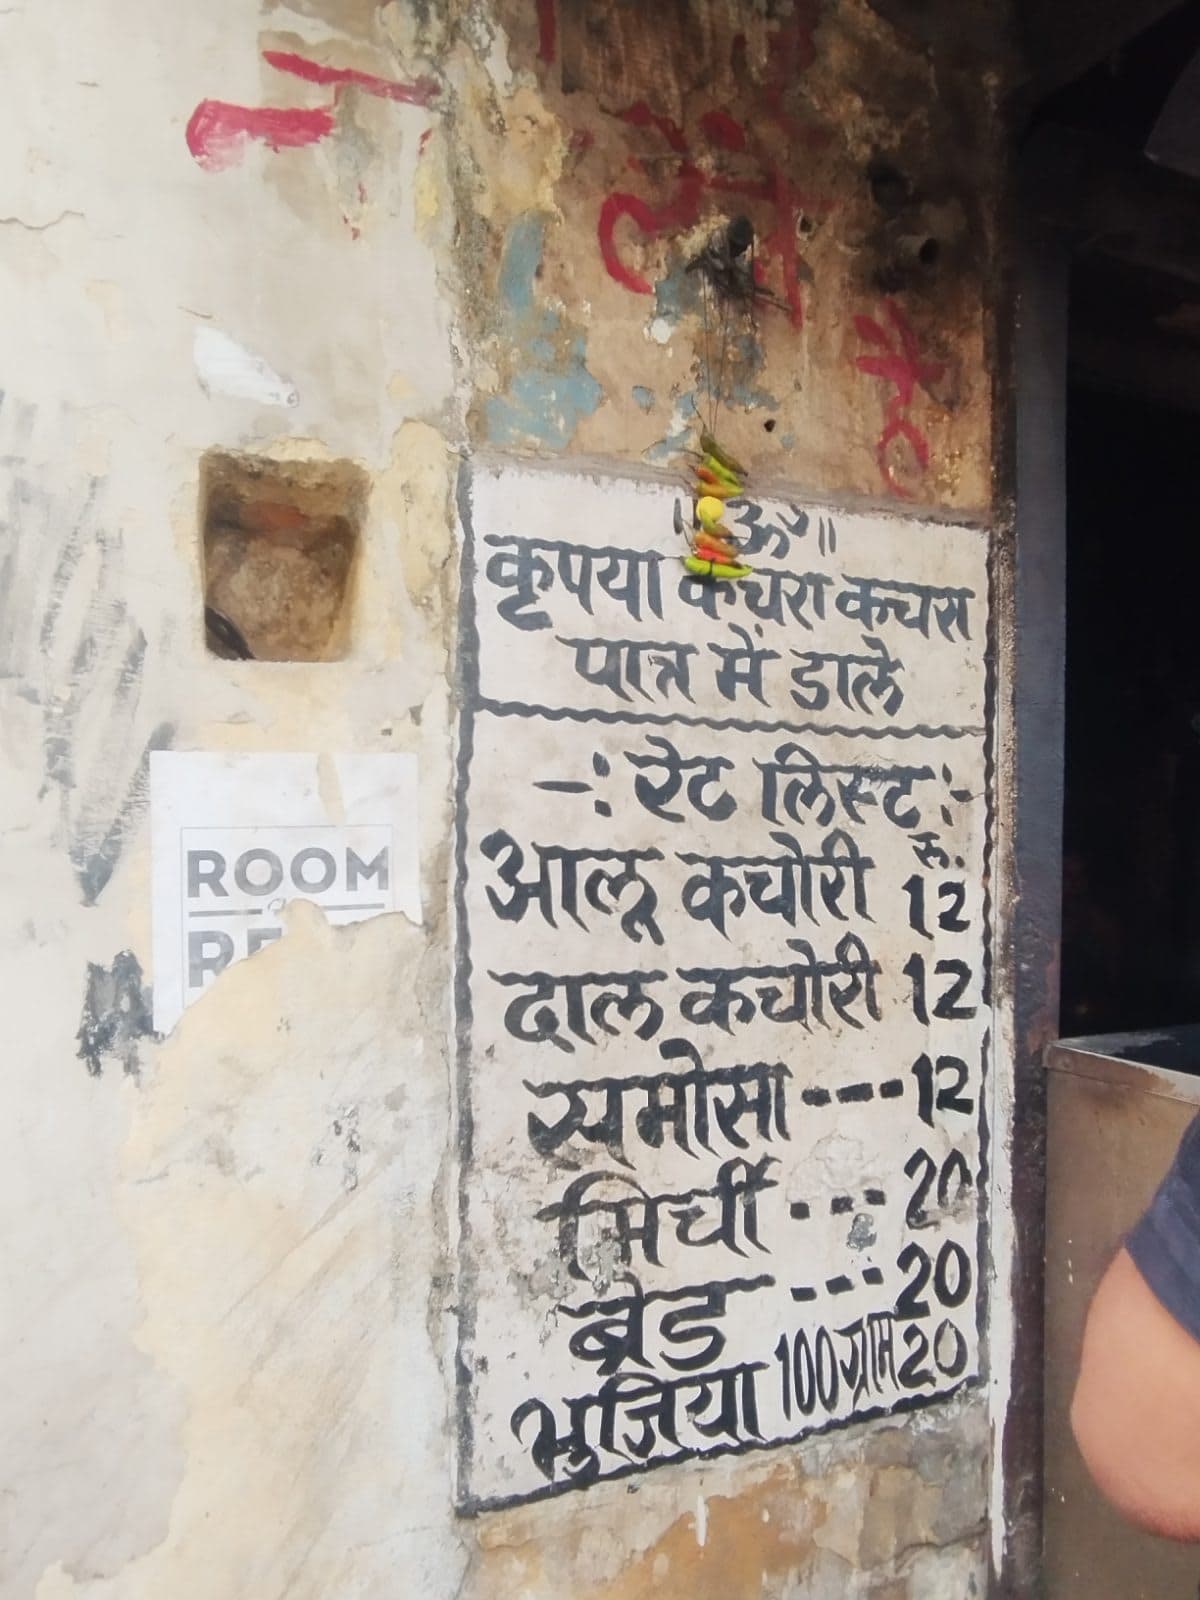 ॥ ॐ ॥
कृपया कचरा कचरा
पात्र में डाले
-: रेट लिस्ट :-
रू.
आलू कचोरी 12
दाल कचोरी 12
समोसा --- 12
मिर्ची --- 20
ब्रेड --- 20
भुजिया 100 ग्राम 20
ROOM